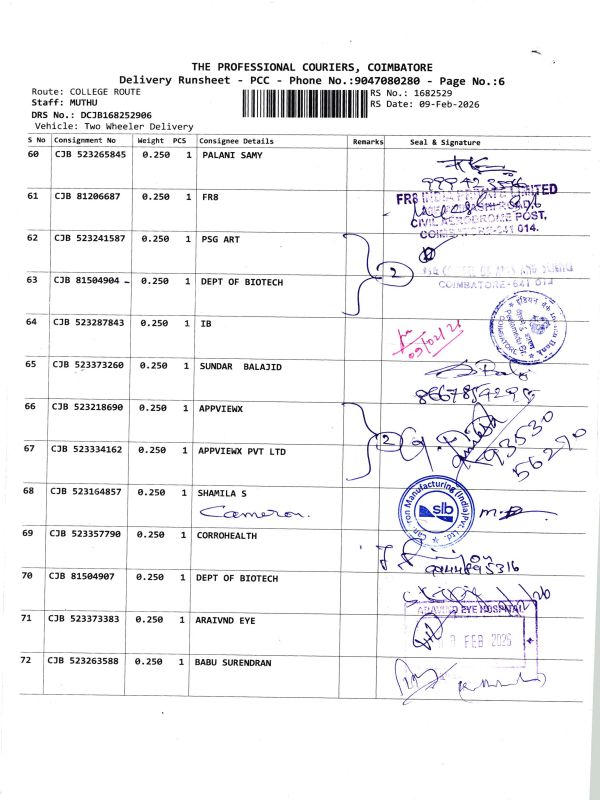 THE PROFESSIONAL COURIERS, COIMBATORE
Delivery Runsheet - PCC - Phone No.:9047080280 - Page No.:6
Route: COLLEGE ROUTE
Staff: MUTHU
DRS No.: DCJB168252906
Vehicle: Two Wheeler Delivery
RS No.: 1682529
RS Date: 09-Feb-2026
S No Consignment No Weight PCS Consignee Details Remarks Seal & Signature
60 CJB 523265845 0.250 1 PALANI SAMY
61 CJB 81206687 0.250 1 FR8
FR8 INDIA PRIVATE LIMITED
CIVIL AERODROME POST,
COIMBATORE-641 014.
62 CJB 523241587 0.250 1 PSG ART
2
COIMBATORE-641 014
63 CJB 81504904 0.250 1 DEPT OF BIOTECH
64 CJB 523287843 0.250 1 IB
09/02/26
65 CJB 523373260 0.250 1 SUNDAR BALAJID
8667854295
66 CJB 523218690 0.250 1 APPVIEWX
2
93530
56290
67 CJB 523334162 0.250 1 APPVIEWX PVT LTD
68 CJB 523164857 0.250 1 SHAMILA S
Cameron.
Cameron Manufacturing (India) Pvt. Ltd.
slb
69 CJB 523357790 0.250 1 CORROHEALTH
9444895316
70 CJB 81504907 0.250 1 DEPT OF BIOTECH
71 CJB 523373383 0.250 1 ARAIVND EYE
ARAVIND EYE HOSPITAL
FEB 2026
72 CJB 523263588 0.250 1 BABU SURENDRAN